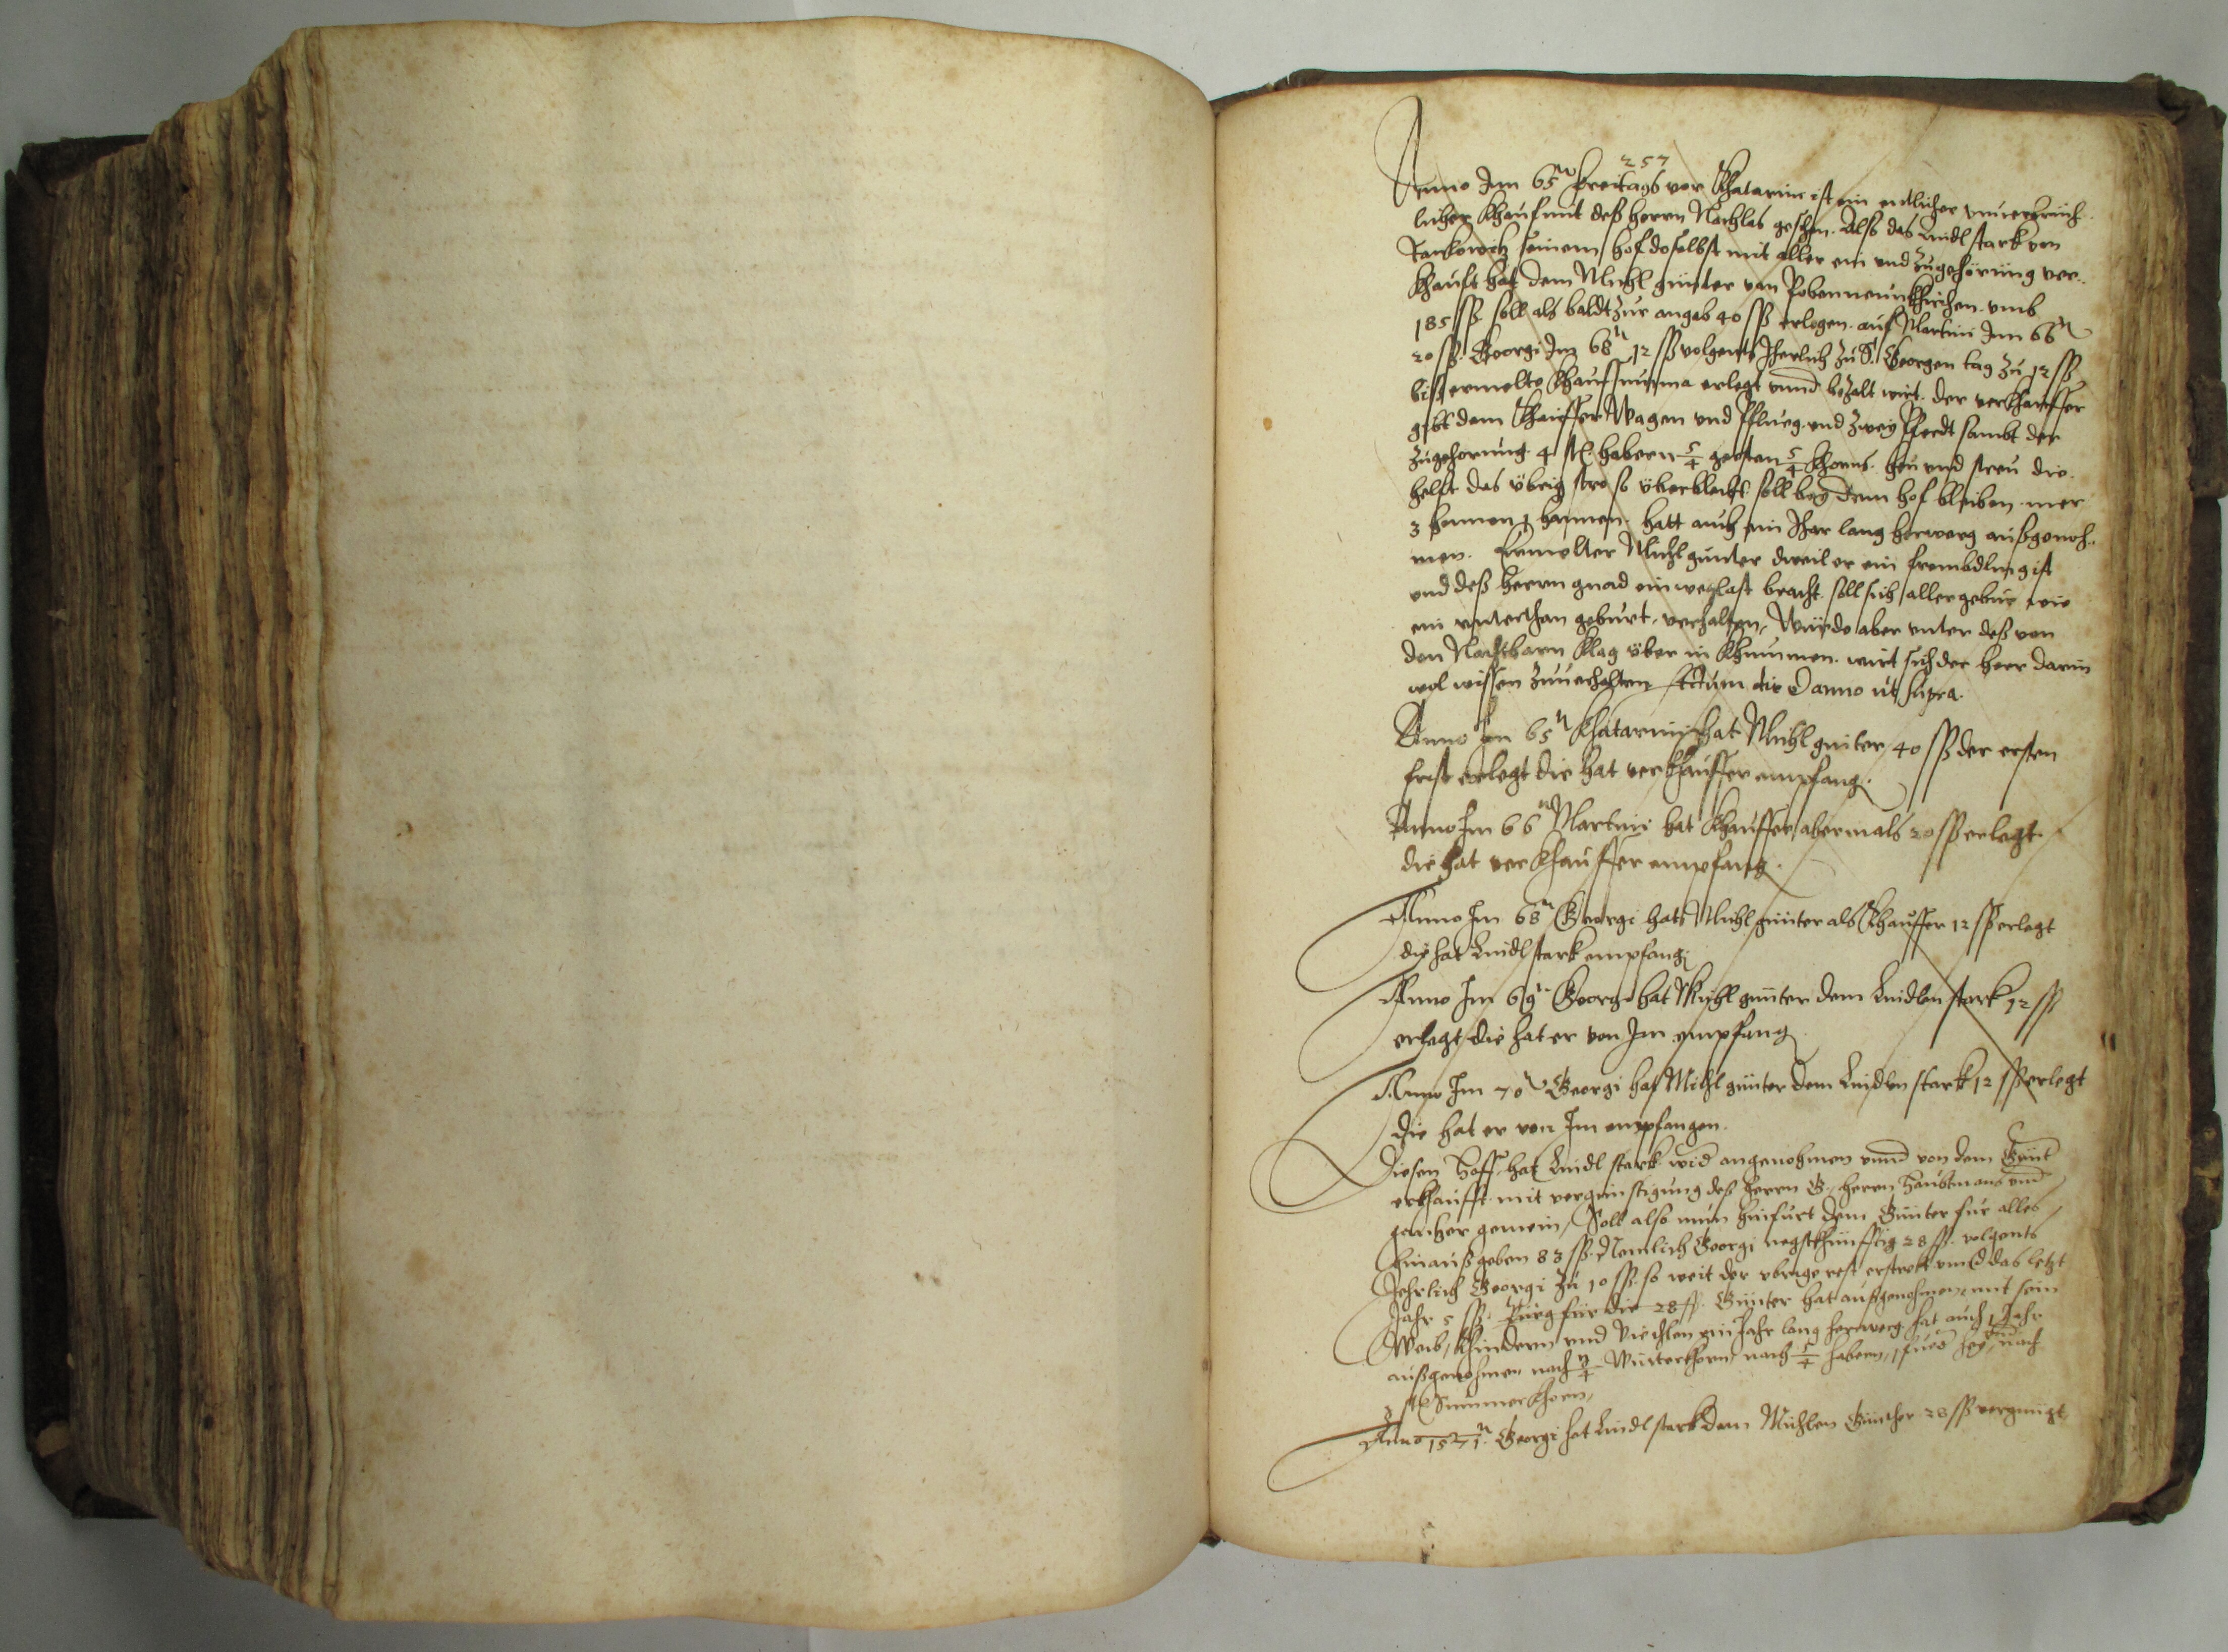 257
Anno Im 65n freitags vor Khatarine ist ein entlicher unuerbrüch-
licher Khauf mit deß herrn Nachlas geschen. Alß das Lindl stark von
seinem hof doselbst mit aller ein und zugehörung ver-
khauft hat dem Michl günter von umb
185 ss. soll als baldt zur angab 40 ss erlegen. auf Martini Im 66n
20 ss. Georgi Im 68n 12 ss volgents Jherlich zu S. Georgen tag zu 12 ss
biß ermelte Khaufsumma erlegt unnd bezalt wirt. der verkhauffer
gibt dem Khauffer Wagen und Pflueg und zwey Pferdt sambt der
zugehorung. 4 habern 5/4 gersten 5/4 Khorns. heu und streu die
helft das übrig stro so überbleibt soll bey dem hof bleiben. mer
3 hennen 1 hannen. hatt auch ein Jhar lang herwerg außgenoh-
men. Ermelter Michl günter dweil er ein frembdling ist
und deß herrn gnad ein weglaß bracht. soll sich aller gebür wie
ein unterthan geburt, verhalten, Würde aber unter deß von
den Nachbarn Klag über in Khummen. wirt sich der herr darin
wol wissen zuuerhalten. Actum die & anno ut supra.
Anno Im 65n Khatarini hat Michl günter 40 ss der ersten
frist erlegt die hat verkhauffer empfang.
Anno Im 66n Martini hat Khauffer abermals 20 ss erlegt.
die hat verkhauffer empfang.
Anno Im 68n Georgi hat Michl günter als Khauffer 12 ss erlegt
die hat Lindl stark empfang
Anno Im 69n Georgi hat Michl günter dem Lindln stark 12 ss
erlegt die hat er von Im empfang
Anno Im 70n Georgi hat Michl günter dem Lindln stark 12 ss erlegt
die hat er von Im empfangen.
Diesen Hoff hat Lindl stark wid angenohmen unnd von dem Günt
erkhaufft mit vergünstigung deß herrn G. herrn Haubtmans und
gantzer gemein, Soll also nun hinfurt dem Günter für alles
hinauß geben 83 ss. Nemlich Georgi negstkhünfftig 28 ss. volgents
Jehrlich Georgi zu 10 ss. so weit der ubrige rest erstrekt unnd das letzt
Jahr 5 ss. Bürg für die 28 ss. Günter hat außgenohmen mit sein
Weib, Khindern und Viechlen ein Jahr lang herwerg hat auch 1 Jahr
außgenohmen nach Winterkhorn, nach 5/4 habern, 1 fued hey, nach
Summer Khorn,
Anno 1571n. Georgi hat Lindl stark dem Michlen Günther 28 ss vergnügt